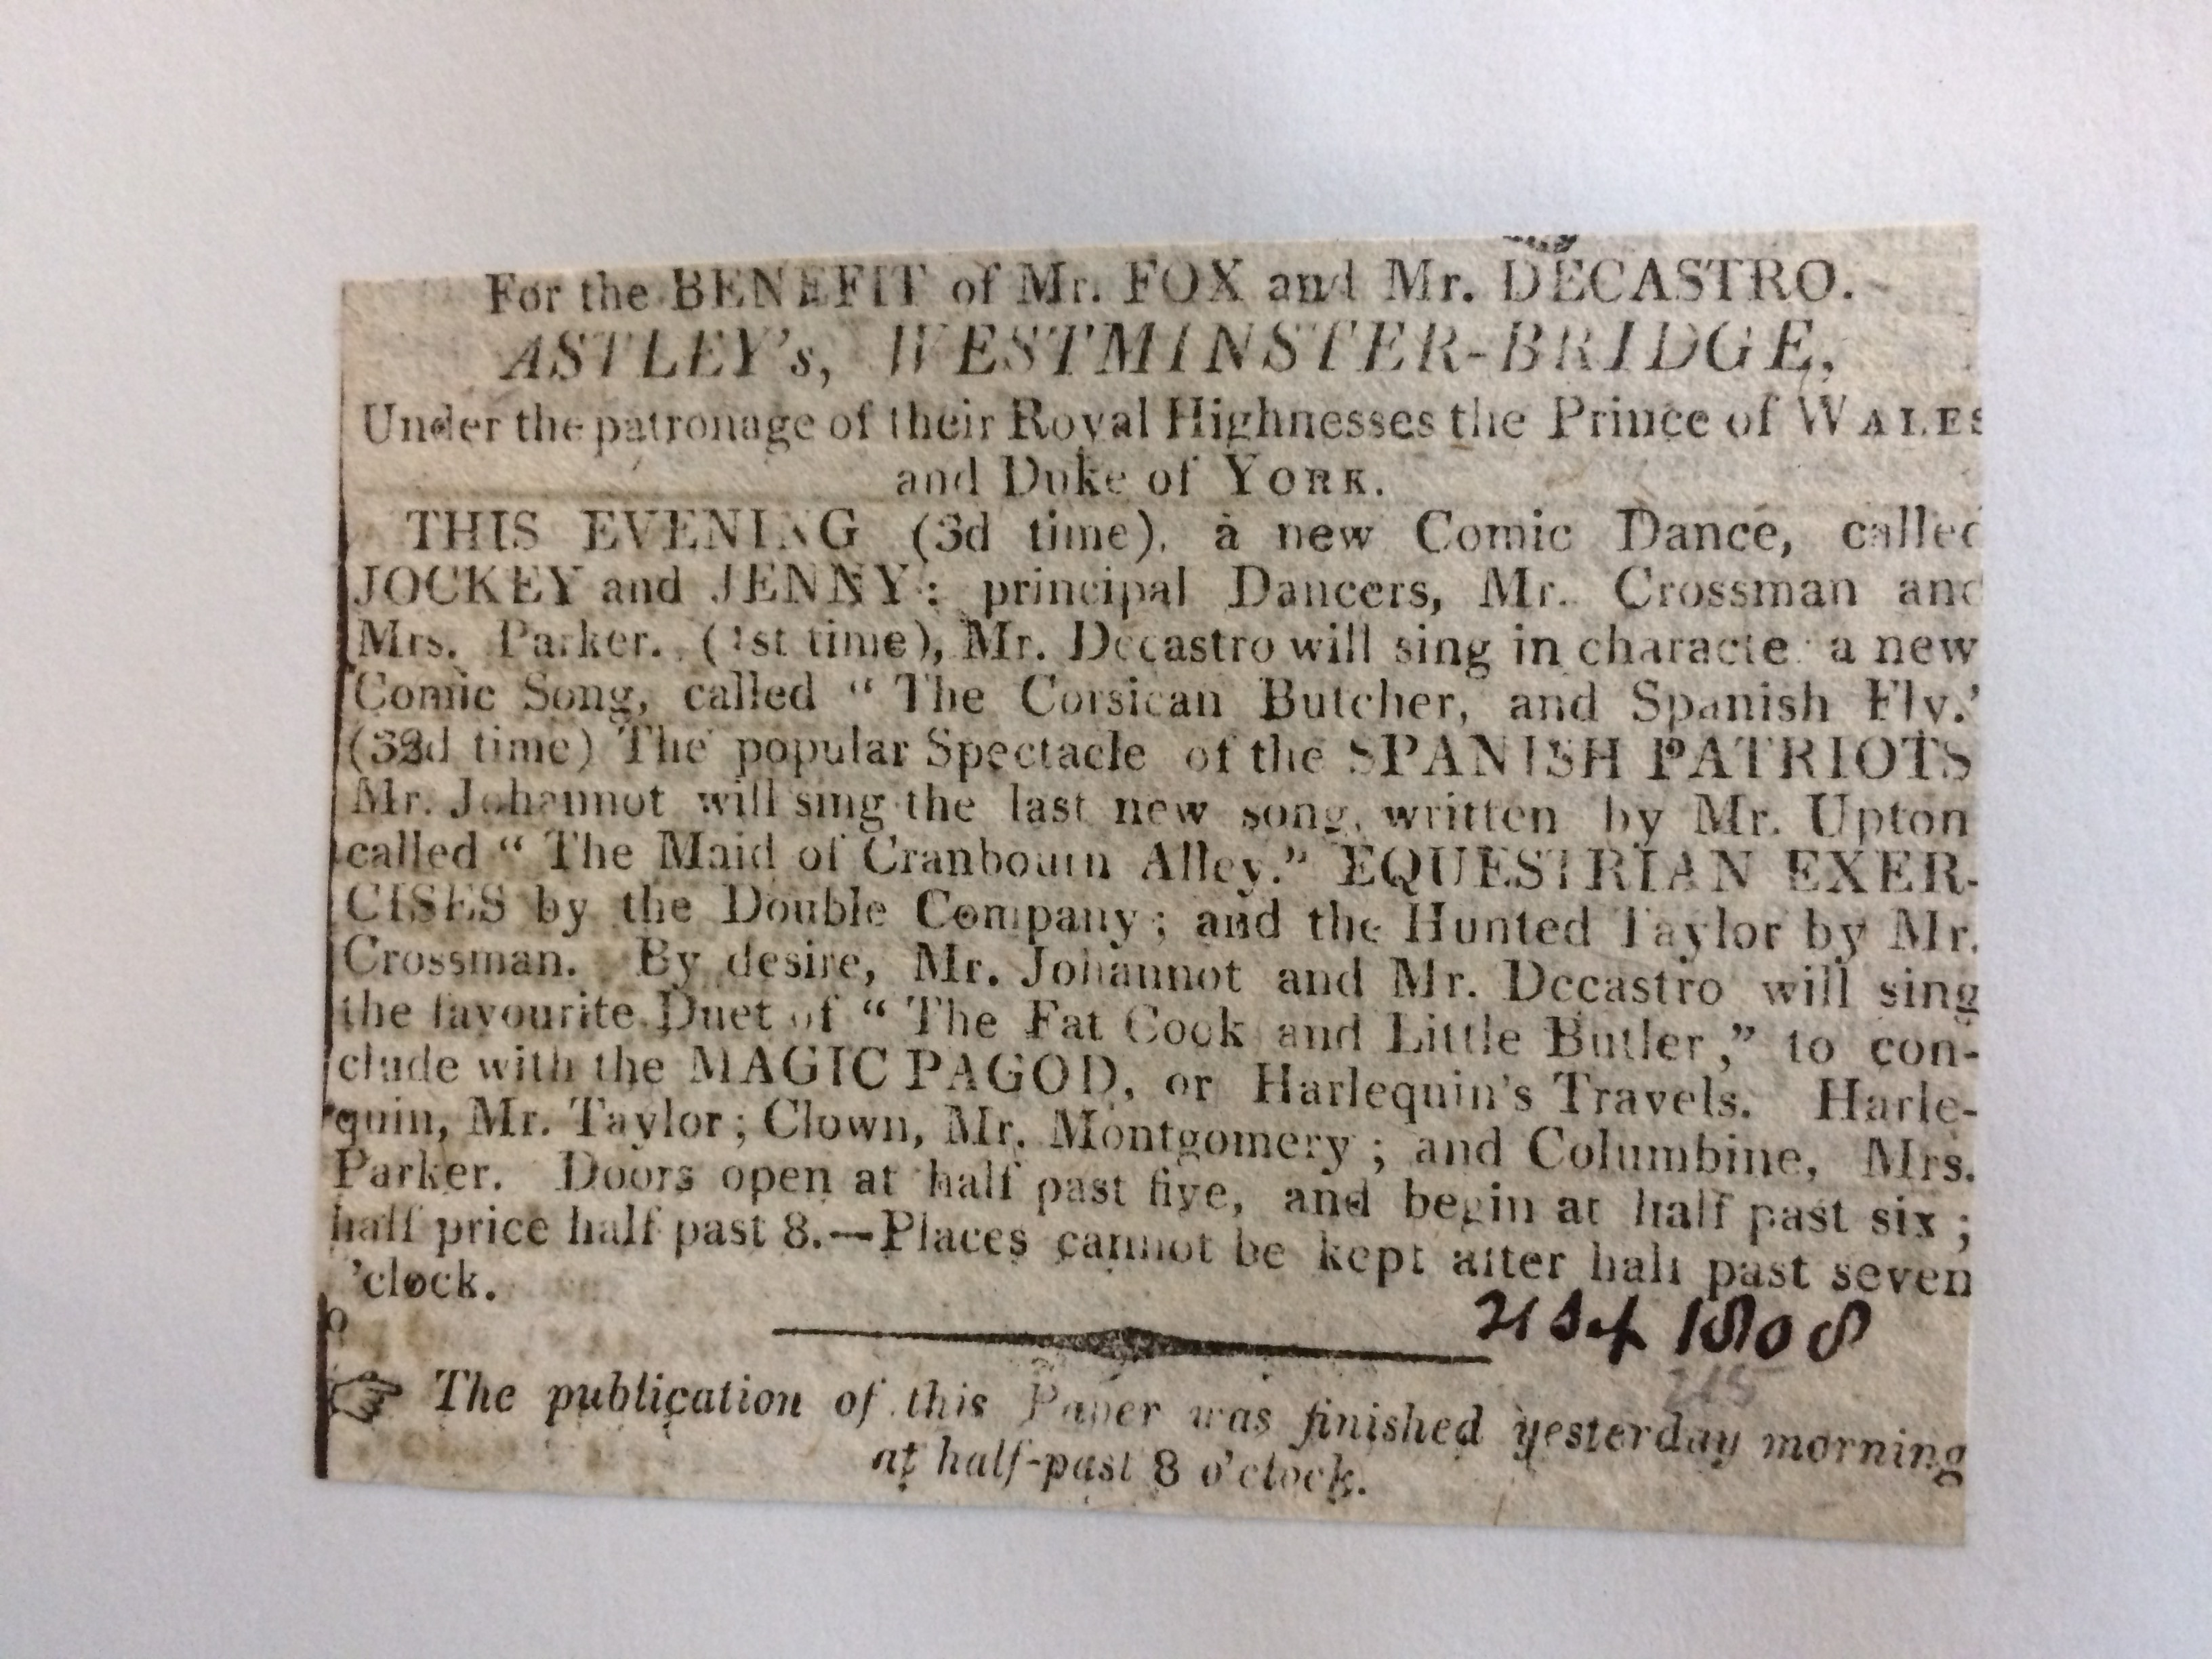 For the BENEFIT of Mr. FOX and Mr. DECASTRO.
ASTLEY's, WESTMINSTER-BRIDGE,
Under the patronage of their Royal Highnesses the Prince of WALES
and Duke of YORK.
THIS EVENING (3d time), a new Comic Dance, called
JOCKEY and JENNY; principal Dancers, Mr. Crossman and
Mrs. Parker. (1st time), Mr. Decastro will sing in characte a new
Comic Song, called “ The Corsican Butcher, and Spanish Fly.’
(32d time) The popular Spectacle of the SPANISH PATRIOTS
Mr. Johannot will sing the last new song, written by Mr. Upton
called “ The Maid of Cranbourn Alley.” EQUESTRIAN EXER-
CISES by the Double Company; and the Hunted Taylor by Mr.
Crossman. By desire, Mr. Johannot and Mr. Decastro will sing
the favourite Duet of “ The Fat Cook and Little Butler,” to con-
clude with the MAGIC PAGOD, or Harlequin's Travels. Harle-
quin, Mr. Taylor; Clown, Mr. Montgomery; and Columbine, Mrs.
Parker. Doors open at half past five, and begin at half past six;
half price half past 8.—Places cannot be kept after half past seven
o'clock.
21 Sep 1808
215
☞ The publication of this Paper was finished yesterday morning
at half-past 8 o'clock.